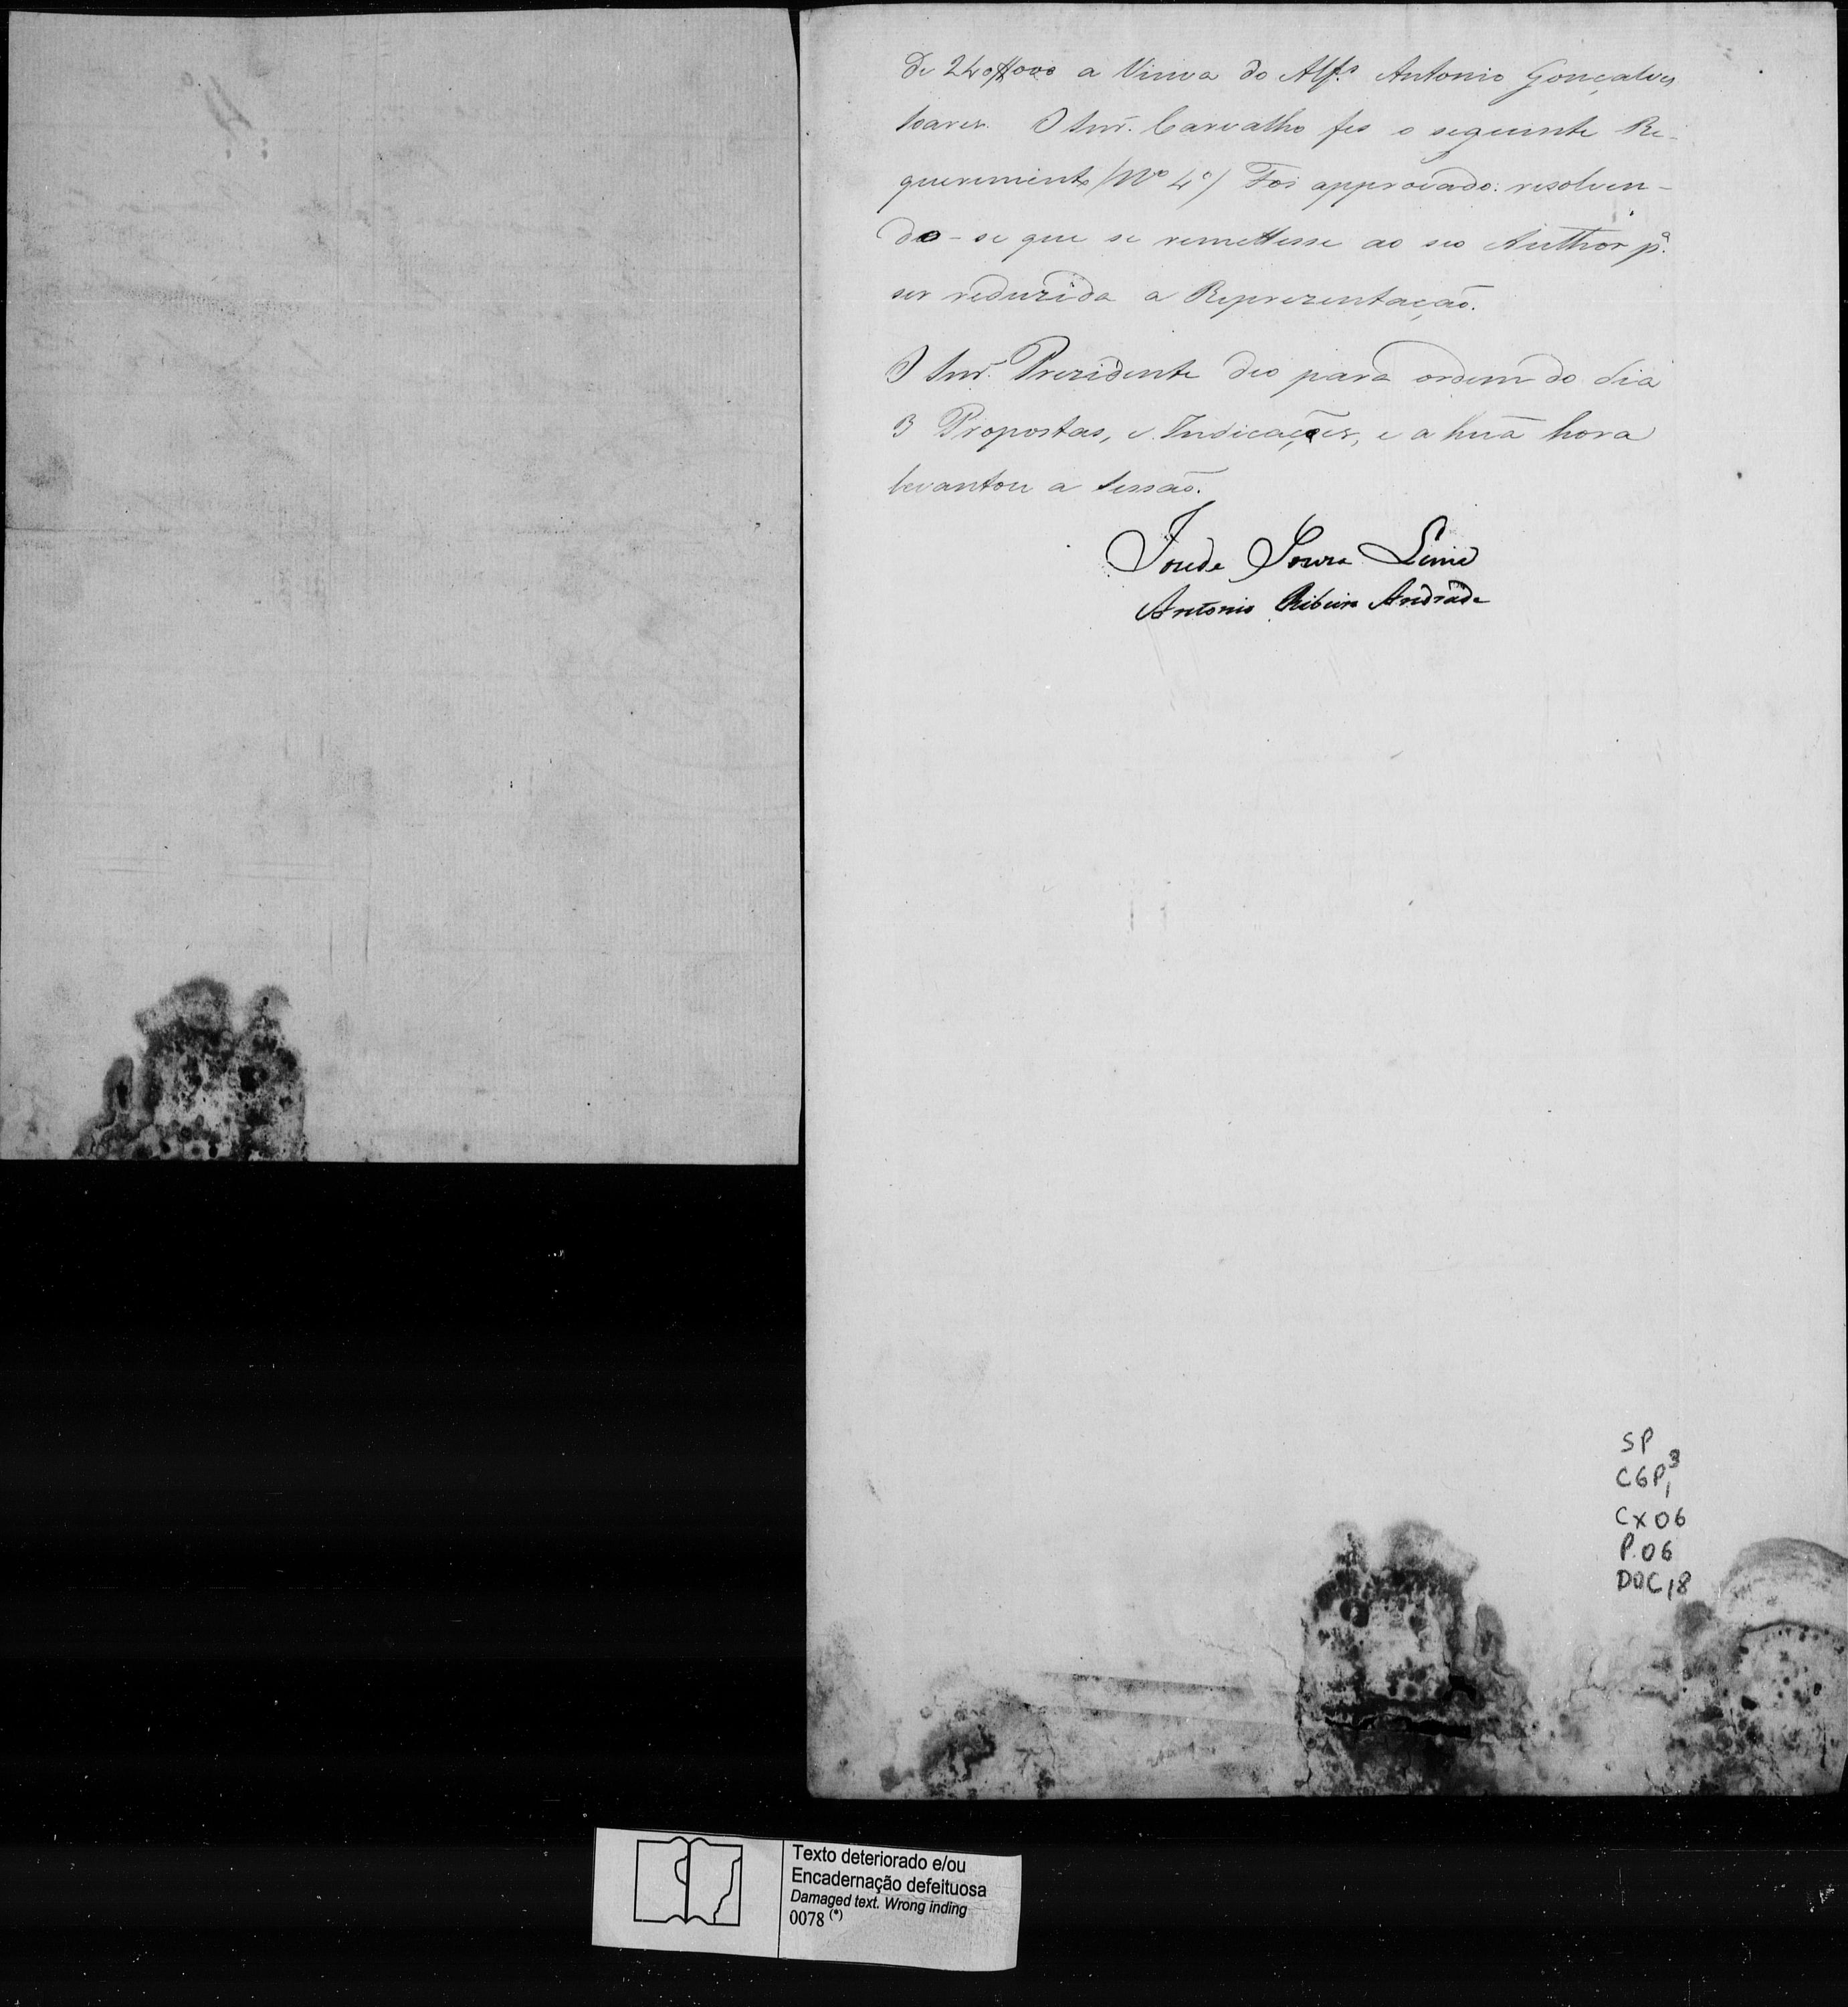 4º
de 240$000 a Viuva do Alfs. Antonio Gonçalves
Soares. O Snr. Carvalho fes o seguinte Re-
querimento (Nº 4º) Foi approvado: resolven-
do-se que se remettesse ao seo Author pª.
ser reduzida a Reprezentação.
O Snr. Prezidente deo para ordem do dia
3 Propostas, e Indicações, e a huã hora
levantou a Sessão.
Souza Lima
Antonio Ribeiro Andrade
SP
CGP, 3
1
CX06
P.06
DOC,18
Texto deteriorado e/ou
Encadernação defeituosa
Damaged text. Wrong inding
0078 (*)